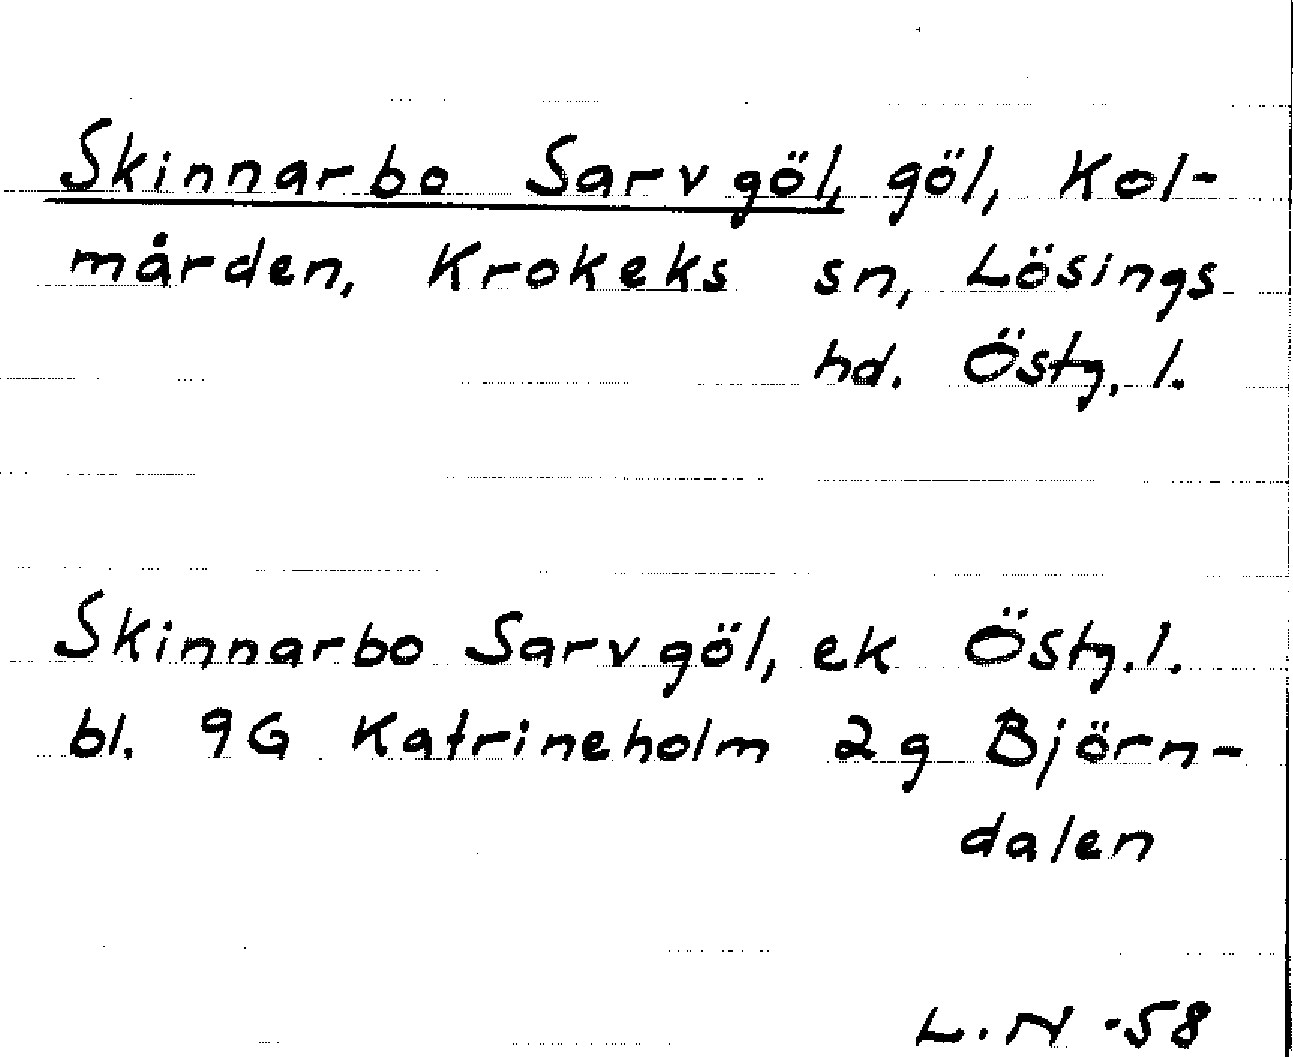 Skinnarbo Sarvgöl, göl, Kol-
mården, Krokeks sn, Lösings
hd. Östg. l.
Skinnarbo Sarvgöl, ek Östg. l.
bl. 9G Katrineholm 2g Björn-
dalen
L. N -58